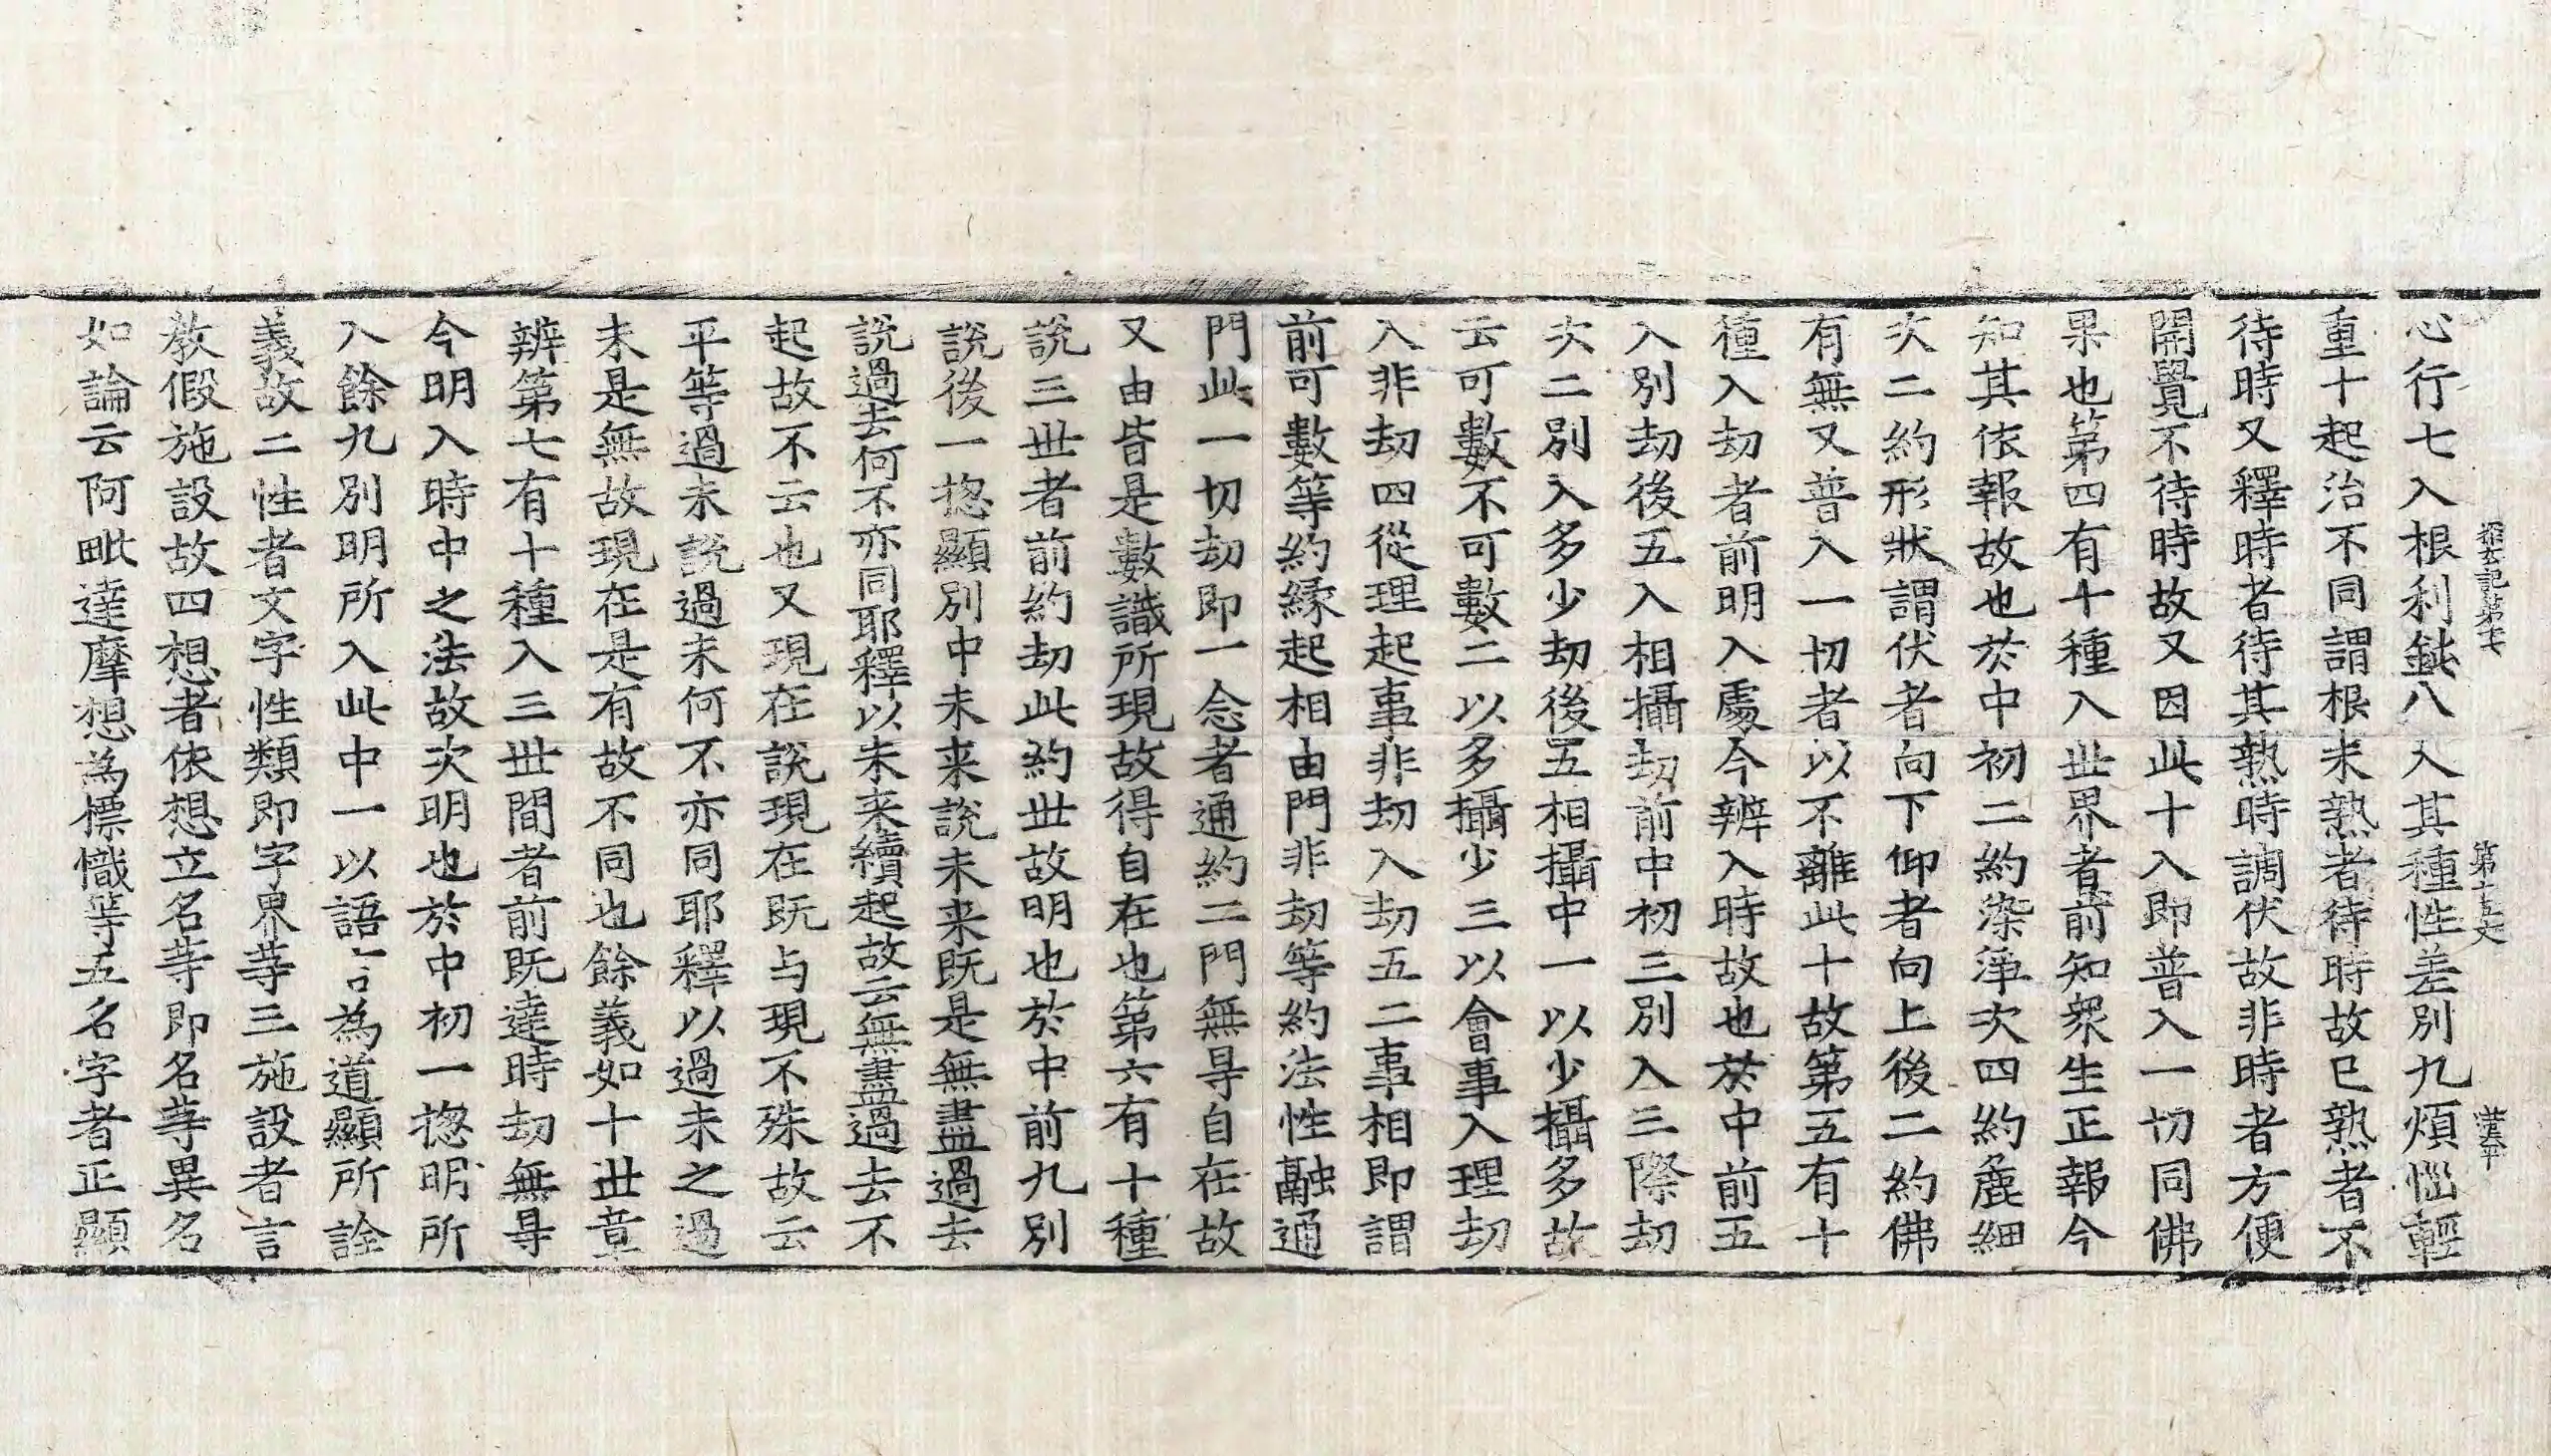 心行七入根利鈍八入其種性差別九煩惱輕
重十起治不同謂根未熟者待時故已熟者不
待時又釋時者待其熟時調伏故非時者方便
開覺不待時故又因此十入即普入一切同佛
果也第四有十種入世界者前知衆生正報今
知其依報故也於中初二約染淨次四約麁細
次二約形狀謂伏者向下仰者向上後二約佛
有無又普入一切者以不離此十故第五有十
種入劫者前明入處今辨入時故也於中前五
入別劫後五入相攝劫前中初三別入三際劫
次二別入多少劫後五相攝中一以少攝多故
云可數不可數二以多攝少三以會事入理劫
入非劫四從理起事非劫入劫五二事相即謂
前可數等約緣起相由門非劫等約法性融通
門此一切劫即一念者通約二門無㝵自在故
又由皆是數識所現故得自在也第六有十種
說三世者前約劫此約世故明也於中前九別
說後一揔顯別中未来說未来既是無盡過去
說過去何不亦同耶釋以未来續起故云無盡過去不
起故不云也又現在說現在既与現不殊故云
平等過未說過未何不亦同耶釋以過未之過
未是無故現在是有故不同也餘義如十世章
辨第七有十種入三世間者前既達時劫無㝵
今明入時中之法故次明也於中初一揔明所
入餘九別明所入此中一以語言為道顯所詮
義故二性者文字性類即字界等三施設者言
教假施設故四想者依想立名等即名等異名
如論云阿毗達摩想為標幟等五名字者正顯
第十五丈